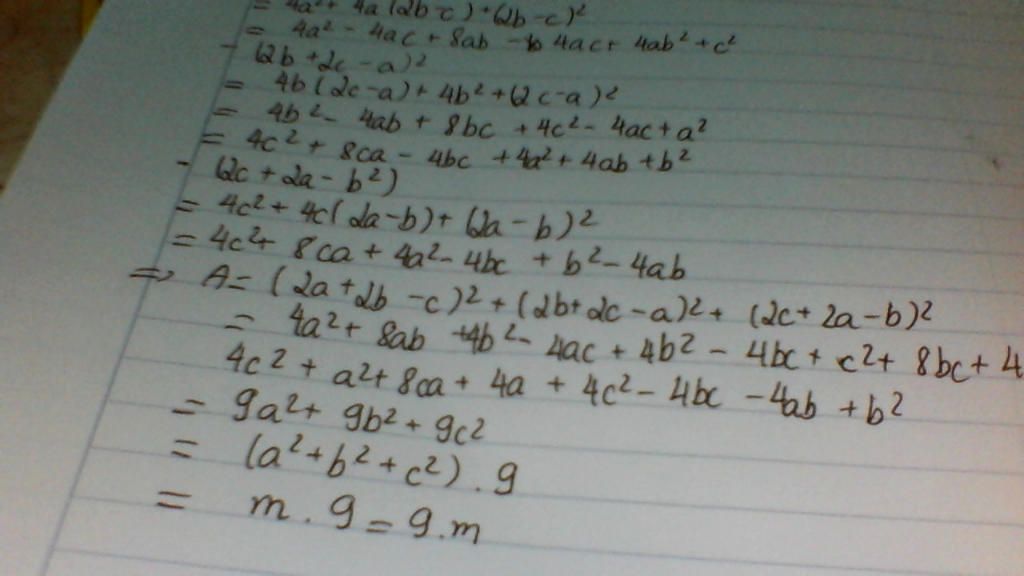 = 4a² + 4a(2b-c)+(2b-c)²
= 4a² - 4ac + 8ab - 4ac + 4ab² + c²
- (2b+2c-a)²
= 4b(2c-a) + 4b² + (2c-a)²
= 4b² - 4ab + 8bc + 4c² - 4ac + a²
= 4c² + 8ca - 4bc + 4a² + 4ab + b²
- (2c + 2a - b²)
= 4c² + 4c(2a-b) + (2a-b)²
= 4c² + 8ca + 4a² - 4bc + b² - 4ab
=> A = (2a+2b-c)² + (2b+2c-a)² + (2c+2a-b)²
= 4a² + 8ab + 4b² - 4ac + 4b² - 4bc + c² + 8bc + 4
4c² + a² + 8ca + 4a + 4c² - 4bc - 4ab + b²
= 9a² + 9b² + 9c²
= (a² + b² + c²) . 9
= m . 9 = 9.m